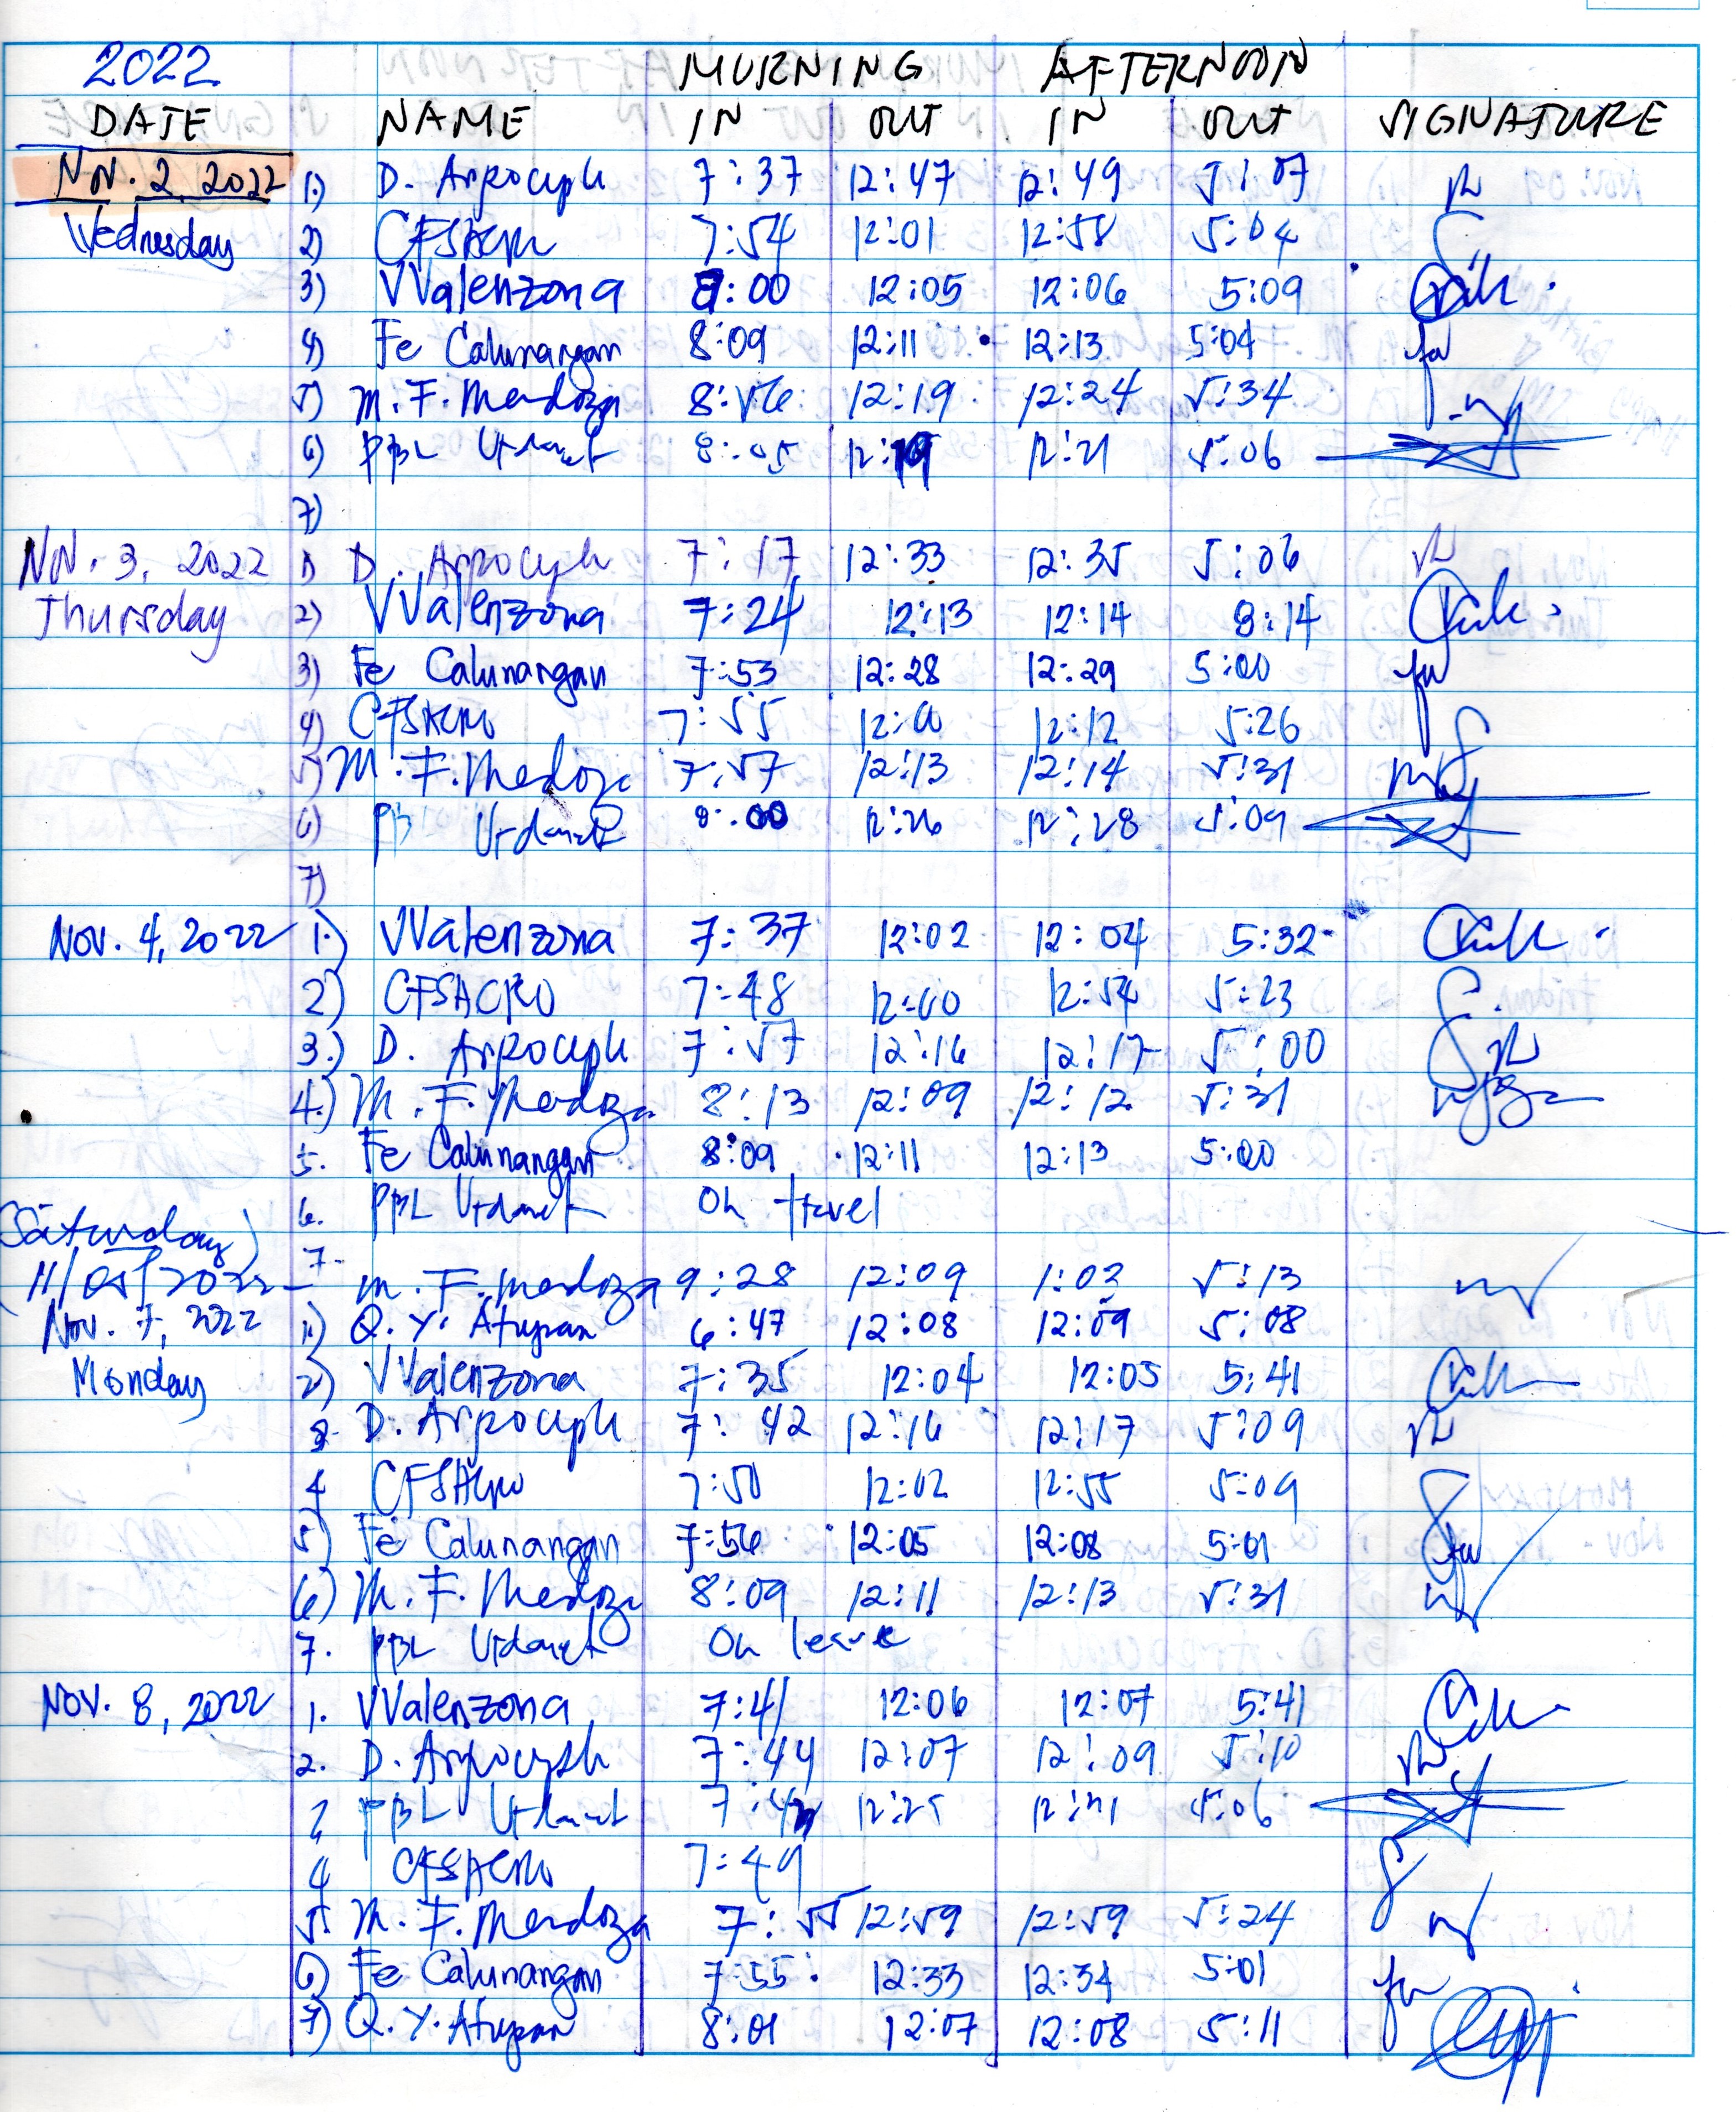 2022 MORNING AFTERNOON
DATE NAME IN OUT IN OUT SIGNATURE
Nov. 2 2022 1.) D. 7:37 12:47 12:49 5:07
Wednesday 2) CFSACRO 7:54 12:01 12:58 5:04
3) VValenzona 8:00 12:05 12:06 5:09
4) Fe Calunangan 8:09 12:11 12:13 5:04
5) M. F. Mendoza 8:56 12:19 12:24 5:34
6) PBL 8:05 12:19 12:21 5:06
7)
Nov. 3, 2022 1) D. 7:17 12:33 12:35 5:06
Thursday 2) VValenzona 7:24 12:13 12:14 8:14
3) Fe Calunangan 7:53 12:28 12:29 5:00
4) CFSACRO 7:55 12:12 5:26
5) M. F. Mendoza 7:57 12:13 12:14 5:31
6) PBL 8:00 12:26 12:28 5:09
7)
Nov. 4, 2022 1.) VValenzona 7:37 12:02 12:04 5:32
2) CFSACRO 7:48 12:00 12:54 5:23
3.) D. 7:57 12:16 12:17 5:00
4.) M. F. Mendoza 8:13 12:09 12:12 5:31
5. Fe Calunangan 8:09 12:11 12:13 5:00
6. PBL On travel
(Saturday)
7-
11/05/2022 - M. F. Mendoza 9:28 12:09 1:02 5:13
Nov. 7, 2022 1.) Q. Y. Atupan 6:47 12:08 12:09 5:08
Monday 2) VValenzona 7:35 12:04 12:05 5:41
3- D. 7:42 12:16 12:17 5:09
4 CFSACRO 7:50 12:02 12:55 5:09
5) Fe Calunangan 7:56 12:05 12:08 5:01
6) M. F. Mendoza 8:09 12:11 12:13 5:31
7. PBL On leave
Nov. 8, 2022 1. VValenzona 7:41 12:06 12:07 5:41
2. D. 7:44 12:07 12:09 5:10
3 PBL 12:25 5:06
4 CFSACRO 7:49
5. M. F. Mendoza 7:55 12:59 12:59 5:24
6) Fe Calunangan 7:55 12:33 12:34 5:01
7) Q. Y. Atupan 8:01 12:07 12:08 5:11